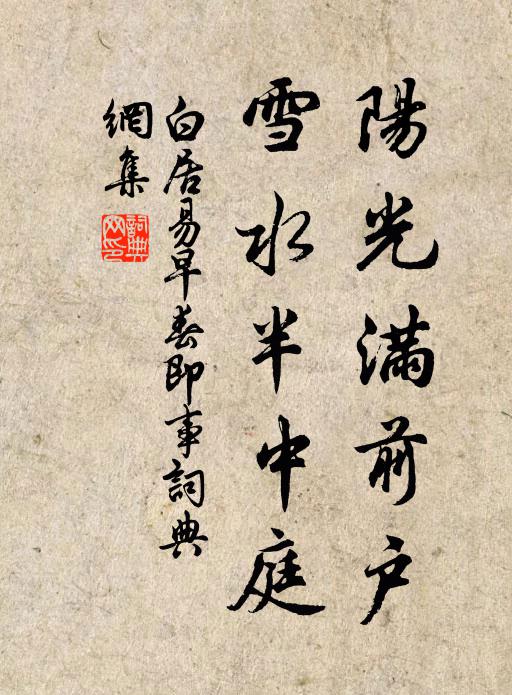 陽光滿前户
雪水半中庭
白居易早春即事詞典
網集
詞典
网印